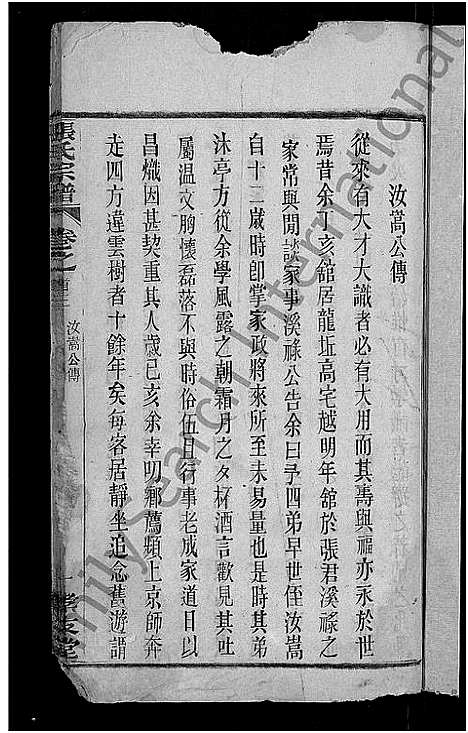 汝嵩公傳
從來有大才大識者必有大用而其壽與福亦永於世
焉昔余丁亥舘居龍坵高宅越明年舘於張君溪祿之
家常與閒談家事溪祿公告余曰予四弟早世侄汝嵩
自十二歲時卽掌家政將來所至未易量也是時其弟
沐亭方從余學風露之朝霜月之夕杯酒言歡見其吐
屬温文胸懷磊落不與時俗伍且行事老成家道日以
昌熾因甚契重其人歲己亥余幸叨鄉薦頻上京師奔
走四方違雲樹者十餘年矣每客居靜坐追念舊遊謂
張氏宗譜
卷之首二
汝嵩公傳
一
堂
FamilySearch International